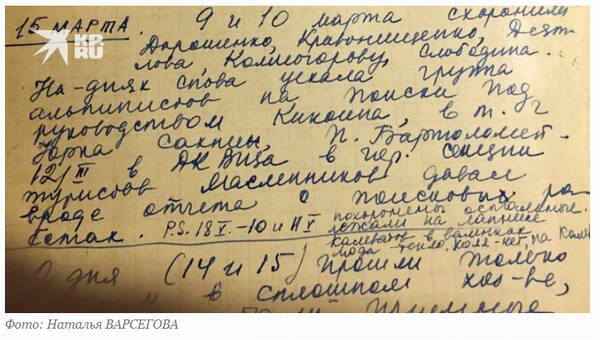 15 МАРТА. 9 и 10 марта схоронили
KP.RU
Дорошенко, Кривонищенко, Дят-
лова, Колмогорову, Слободина.
На-днях снова уехала группа
альпинистов на поиски под
руководством Кикоина, в т. ч
Юрка Сакнцы, П. Бартоломей.
12/III в ДК ВИЗа в гор. секции
туристов Масленников давал
вроде отчета о поисковых ра
ботах. P.S. 18 V. - 10 и 11 V
похоронены остальные.
лежали на лапнике
в валенках
тепло. Коля - нет, на
дня (14 и 15) прошли только
" в сплошном хоз-ве,
приемные
Фото: Наталья ВАРСЕГОВА